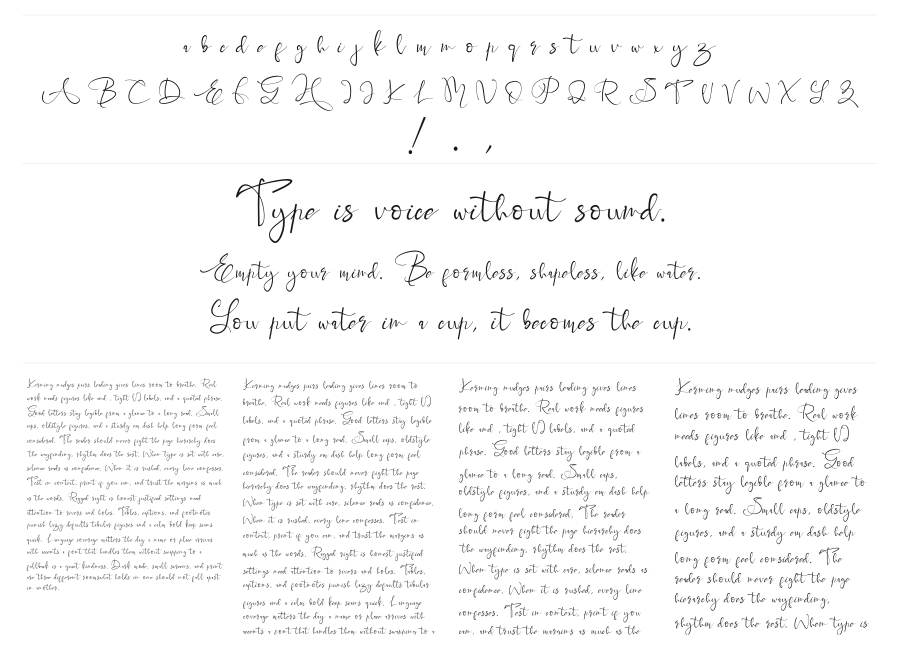 a b c d e f g h i j k l m n o p q r s t u v w x y z
A B C D E F G H I J K L M N O P Q R S T U V W X Y Z
! . ,
Type is voice without sound.
Empty your mind. Be formless, shapeless, like water.
You put water in a cup, it becomes the cup.
Kerning nudges pairs leading gives lines room to breathe. Real
work needs figures like and , tight VJ labels, and a quoted phrase.
Good letters stay legible from a glance to a long read. Small
caps, oldstyle figures, and a sturdy em dash help long form feel
considered. The reader should never fight the page hierarchy does
the wayfinding, rhythm does the rest. When type is set with care,
silence reads as confidence. When it is rushed, every line confesses.
Test in context, print if you can, and trust the margins as much
as the words. Ragged right is honest justified settings need
attention to rivers and holes. Tables, captions, and footnotes
punish lazy defaults tabular figures and a calm bold keep scans
quick. Language coverage matters the day a name or place arrives
with accents a font that handles them without swapping to a
fallback is a quiet kindness. Dark mode, small screens, and print
no three different
in another.
Kerning nudges pairs leading gives lines room to
breathe. Real work needs figures like and , tight VJ
labels, and a quoted phrase. Good letters stay legible
from a glance to a long read. Small caps, oldstyle
figures, and a sturdy em dash help long form feel
considered. The reader should never fight the page
hierarchy does the wayfinding, rhythm does the rest.
When type is set with care, silence reads as confidence.
When it is rushed, every line confesses. Test in
context, print if you can, and trust the margins as
much as the words. Ragged right is honest justified
settings need attention to rivers and holes. Tables,
captions, and footnotes punish lazy defaults tabular
figures and a calm bold keep scans quick. Language
coverage matters the day a name or place arrives with
accents a font that handles them without swapping to a
Kerning nudges pairs leading gives lines
room to breathe. Real work needs figures
like and , tight VJ labels, and a quoted
phrase. Good letters stay legible from a
glance to a long read. Small caps,
oldstyle figures, and a sturdy em dash help
long form feel considered. The reader
should never fight the page hierarchy does
the wayfinding, rhythm does the rest.
When type is set with care, silence reads as
confidence. When it is rushed, every line
confesses. Test in context, print if you
can, and trust the margins as much as the
Kerning nudges pairs leading gives
lines room to breathe. Real work
needs figures like and , tight VJ
labels, and a quoted phrase. Good
letters stay legible from a glance to
a long read. Small caps, oldstyle
figures, and a sturdy em dash help
long form feel considered. The
reader should never fight the page
hierarchy does the wayfinding,
rhythm does the rest. When type is